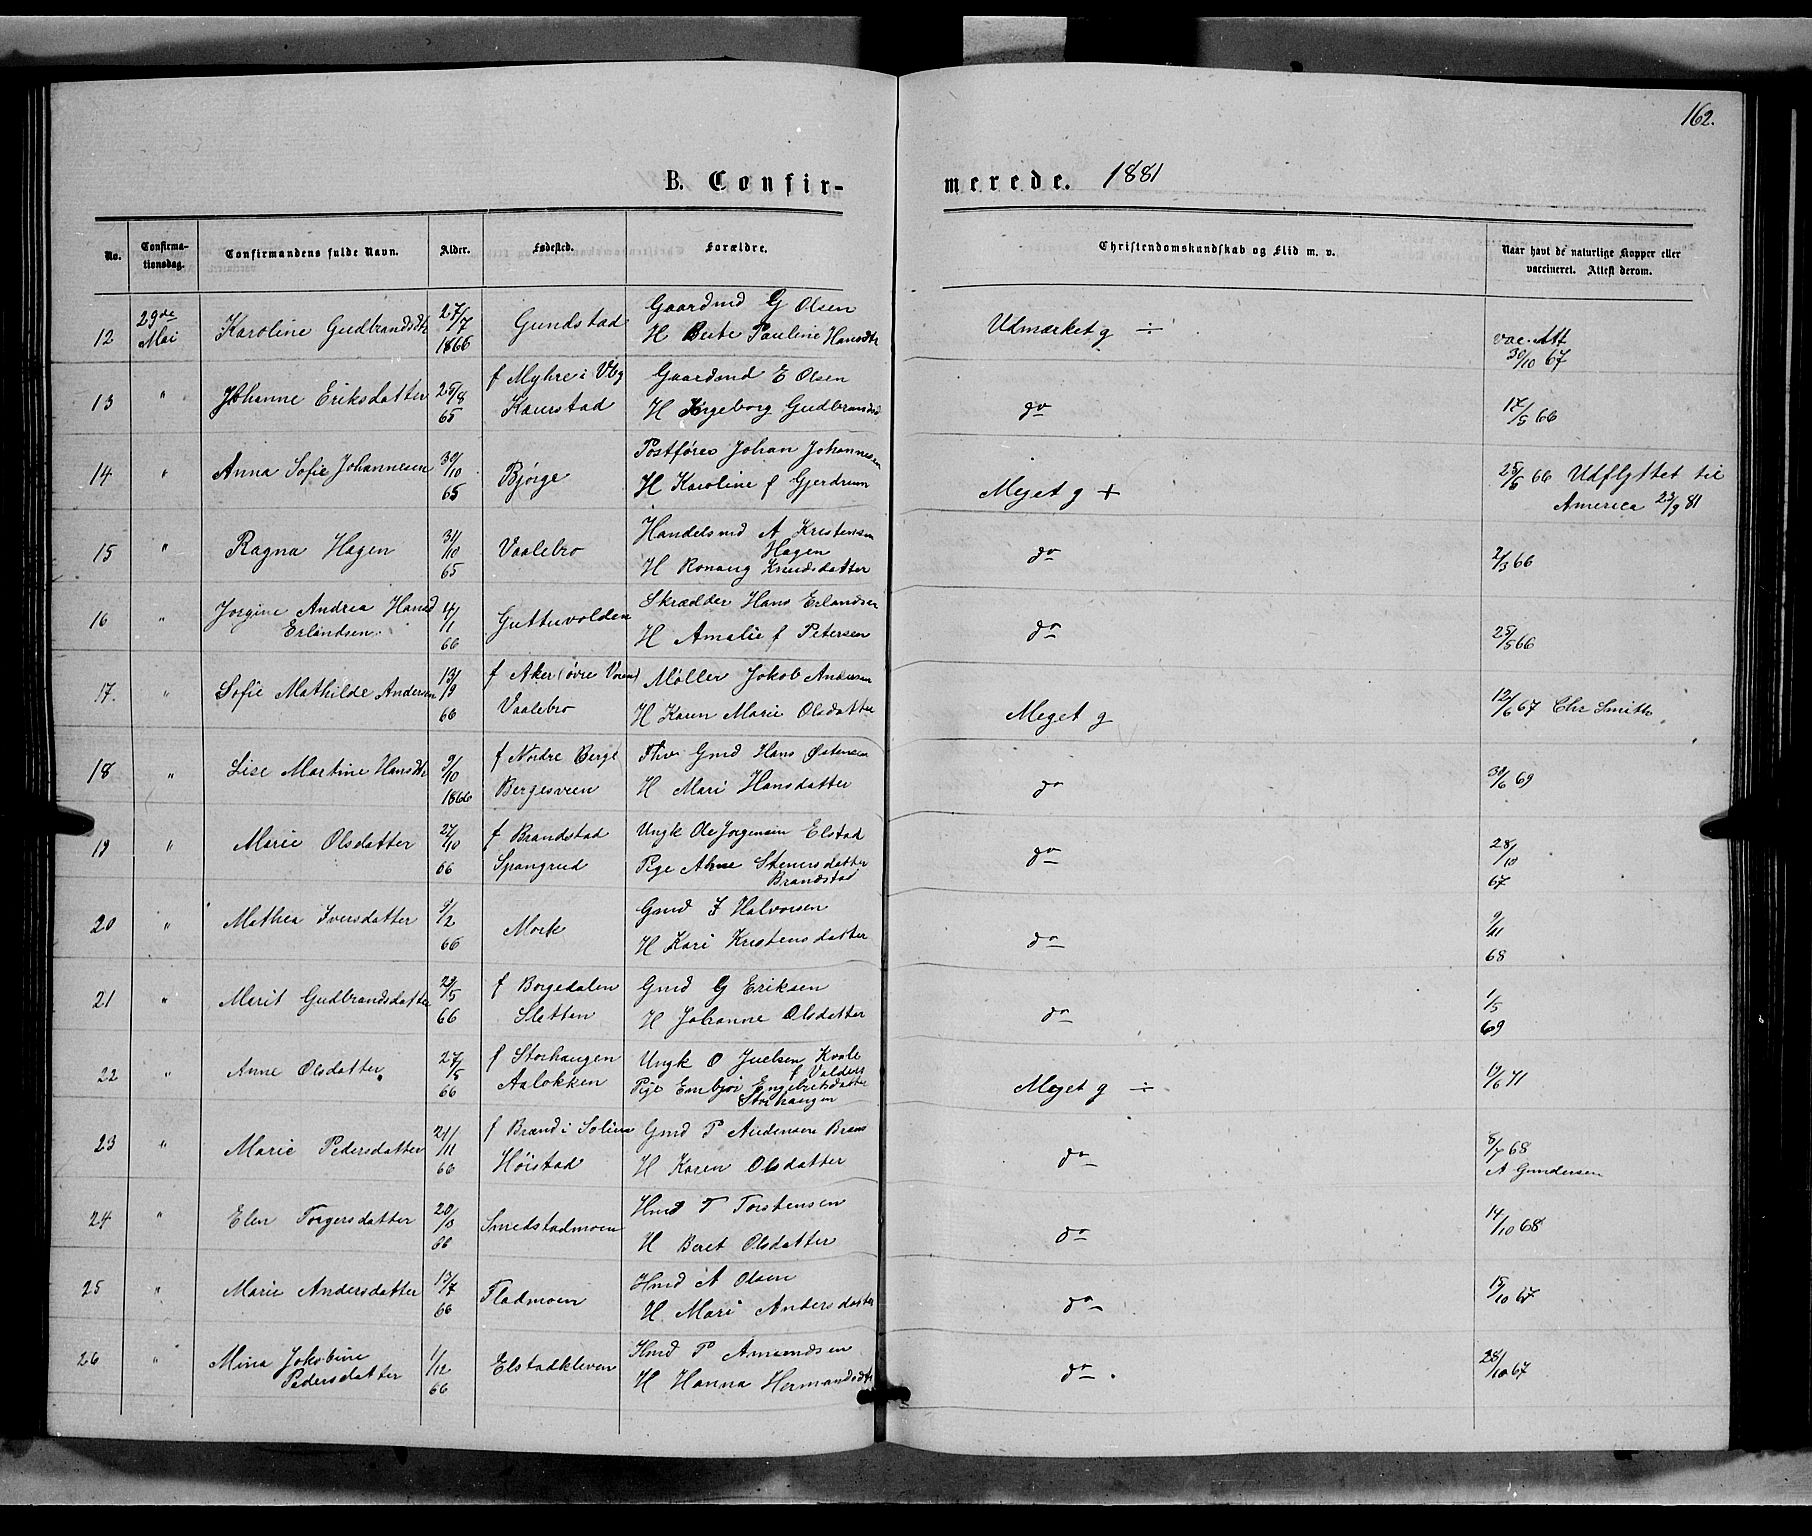 162.
B. Confir-
merede. 1881
No.
Confirma-
tionsdag.
Confirmandens fulde Navn.
Alder.
Fødested.
Forældre.
Christendomskundskab og Flid m. v.
Naar havt de naturlige Kopper eller
vaccineret. Attest derom.
12 29de Mai Karoline Gudbrandsdtr 27/7 1866 Gundstad Gaardmd G Olsen
H Beite Pauline Hansdtr Udmærket g ÷ vac. Att 30/10 67
13 " Johanne Eriksdatter 25/8 65 f Myhre i Vbg Gaardmd E Olsen
Kaurstad H Ingeborg Gudbrandsd do 17/5 66
14 " Anna Sofie Johannesen 30/10 65 Bjørge Postfører Johan Johannesen
H Karoline f Gjerdrum Meget g + 25/6 66 Udflyttet til
America 23/9 81
15 " Ragna Hagen 31/10 65 Vaalebro Handelsmd A Kristensen
Hagen
H Ronaug Knudsdatter do 2/3 66
16 " Jorgine Andrea Hansd 4/1 66 Guttuvolden Skrædder Hans Erlandsen
Erlandsen. H Amalie f Petersen do 25/5 66
17. " Sofie Mathilde Andersen 13/9 66 f Aker (øvre Voien) Møller Jokob Andersen
Vaalebro H Karen Marie Olsdatter Meget g 12/6 67 Chr Smith
18 " Lise Martine Hansdtr 9/10 1866 f Nordre Berge Fhv Gmd Hans Østensen
Bergesveen H Mari Hansdatter do 30/6 69
19 " Marie Olsdatter 27/10 66 f Brandstad Ungk Ole Jorgensen Elstad
Spangrud Pige Ahne Stenersdatter
Brandstad do 28/10 67
20 " Mathea Iversdatter 9/2 66 Mork Gmd I Halvorsen
H Kari Kristensdatter do 9/11 68
21 " Marit Gudbrandsdatter 23/5 66 f Borgedalen Gmd G Eriksen
Sletten H Johanne Olsdatter do 1/5 69
22 " Anne Olsdatter 27/5 66 f Storhaugen Ungk O Juelsen Kvale
f Valders
Aalokken Pige Embjør Engebretsdatter
Storhaugen Meget g ÷ 19/6 71
23 " Marie Pedersdatter 21/11 66 f Brænd i Solien Gmd P Audensen Bræn
Høistad H Karen Olsdatter do 8/7 68
A Gundersen
24 " Elen Torgersdatter 20/8 66 Smedstadmoen Hmd T Torstensen
H Beret Olsdatter do 14/10 68
25 " Marie Andersdatter 13/7 66 Fladmoen Hmd A Olsen
H Mari Andersdatter do 15/10 67
26 " Mina Jokobine 1/12 66 Elstadkleven Hmd P Amundsen
Pedersdatter H Hanna Hermandsdtr do . 28/10 67